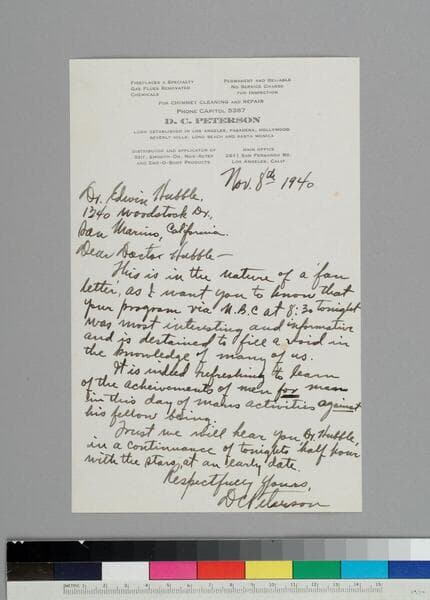 FIREPLACES A SPECIALTY
GAS FLUES RENOVATED
CHEMICALS
PERMANENT AND RELIABLE
NO SERVICE CHARGE
FOR INSPECTION
FOR CHIMNEY CLEANING AND REPAIR
PHONE CAPITOL 5387
D. C. PETERSON
LONG ESTABLISHED IN LOS ANGELES, PASADENA, HOLLYWOOD
BEVERLY HILLS, LONG BEACH AND SANTA MONICA
DISTRIBUTOR AND APPLICATOR OF
SMOOTH-ON,
PRODUCTS
MAIN OFFICE
2611 SAN FERNANDO RD.
LOS ANGELES, CALIF
Nov. 8th 1940
Dr. Edwin Hubble.
1340 Woodstock Dr,
San Marino, California.
Dear Doctor Hubble –
This is in the nature of a 'fan
letter', as I want you to know that
your program via N.B.C at 8:30 tonight
was most interesting and informative
and is destained to fill a void in
the knowledge of many of us.
It is indeed refreshing to learn
of the acheivements of men for man
in this day of mans activities against
his fellow being.
Trust we will hear you Dr. Hubble,
in a continuance of tonights half hour
with the stars, at an early date.
Respectfully yours,
D C Peterson